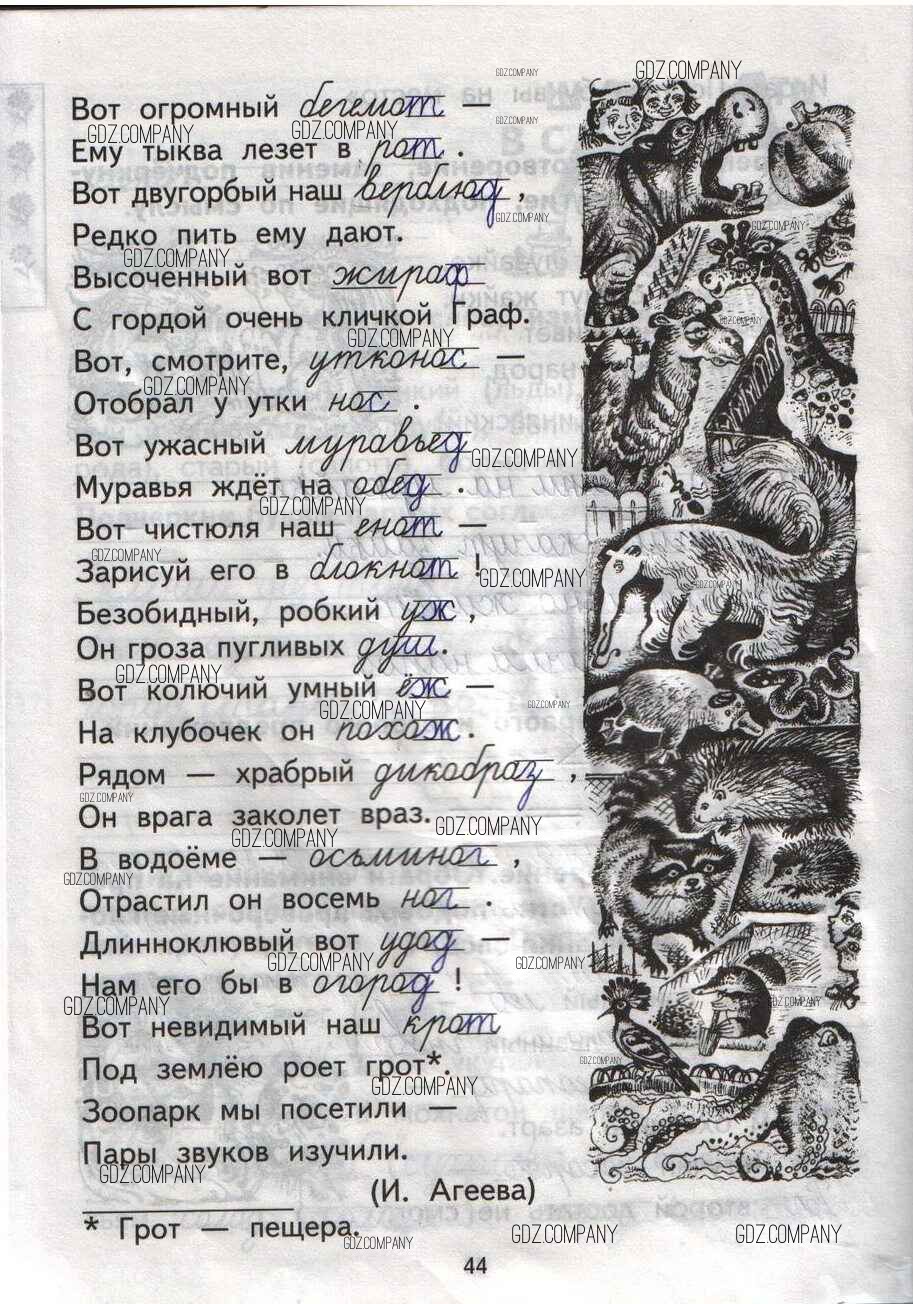 Вот огромный бегемот —
Ему тыква лезет в рот.
Вот двугорбый наш верблюд,
Редко пить ему дают.
Высоченный вот жираф
С гордой очень кличкой Граф.
Вот, смотрите, утконос —
Отобрал у утки нос.
Вот ужасный муравьед
Муравья ждёт на обед.
Вот чистюля наш енот —
Зарисуй его в блокнот!
Безобидный, робкий уж,
Он гроза пугливых душ.
Вот колючий умный ёж —
На клубочек он похож.
Рядом — храбрый дикобраз,
Он врага заколет враз.
В водоёме — осьминог,
Отрастил он восемь ног.
Длинноклювый вот удод —
Нам его бы в огород!
Вот невидимый наш крот
Под землёю роет грот*.
Зоопарк мы посетили —
Пары звуков изучили.
(И. Агеева)
* Грот — пещера.
44
GDZ.COMPANY